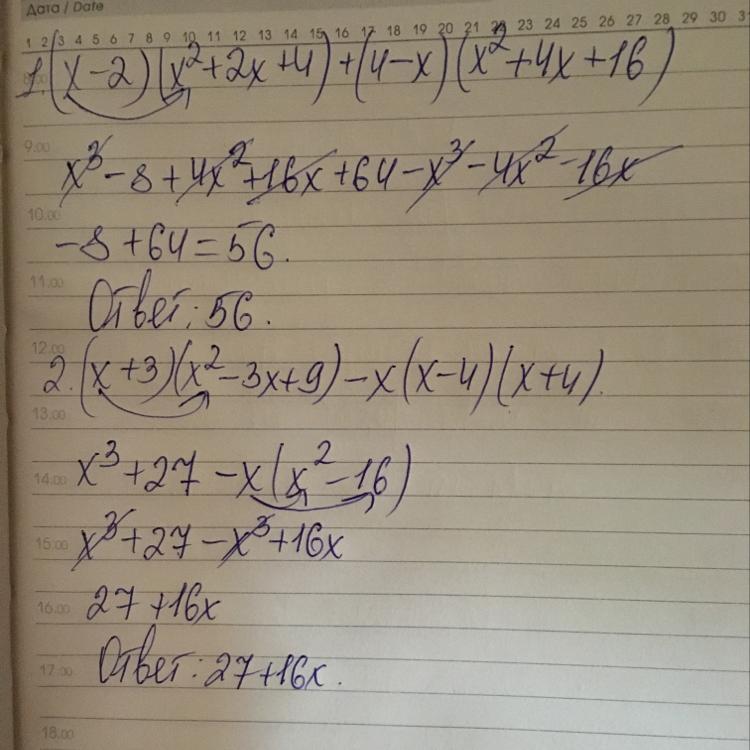 Дата / Date
1 2 3 4 5 6 7 8 9 10 11 12 13 14 15 16 17 18 19 20 21 22 23 24 25 26 27 28 29 30 31
8.00
1. (x-2)(x²+2x+4)+(4-x)(x²+4x+16)
9.00
x³-8+4x²+16x+64-x³-4x²-16x
10.00
-8+64=56.
11.00
Ответ: 56.
12.00
2. (x+3)(x²-3x+9)-x(x-4)(x+4).
13.00
x³+27-x(x²-16)
14.00
x³+27-x³+16x
15.00
27+16x
16.00
Ответ: 27+16x.
17.00
18.00